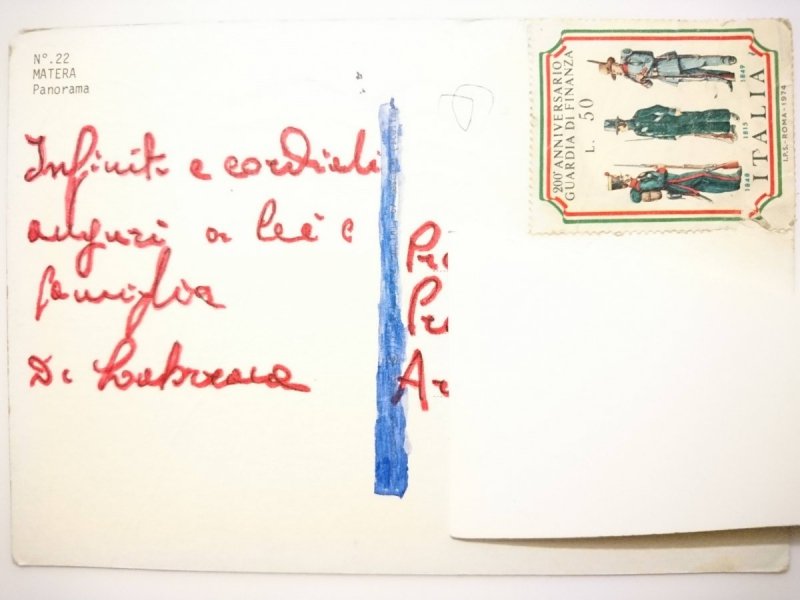 N°.22
MATERA
Panorama
Infiniti e cordiali
auguri a lei e
famiglia
Di
Pr
Pr
Ar
200° ANNIVERSARIO
GUARDIA DI FINANZA
L. 50
1849
1815
1848
ITALIA
I.P.S.-ROMA-1974